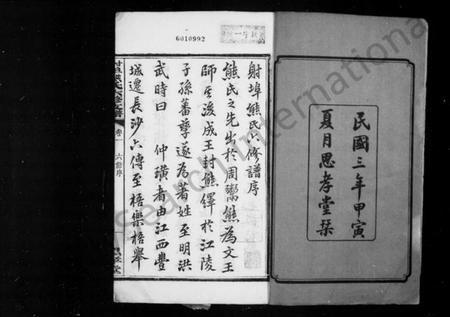 民國三年甲寅
夏月思孝堂栞
6010992
射埠熊氏六修譜序
熊氏之先出於周鬻熊為文王
師至後成王封熊繹於江陵
子孫蕃孳遂為著姓至明洪
武時曰 仲璜者由江西豐
城遷長沙六傳至梧樂梧舉
卷一 六修序